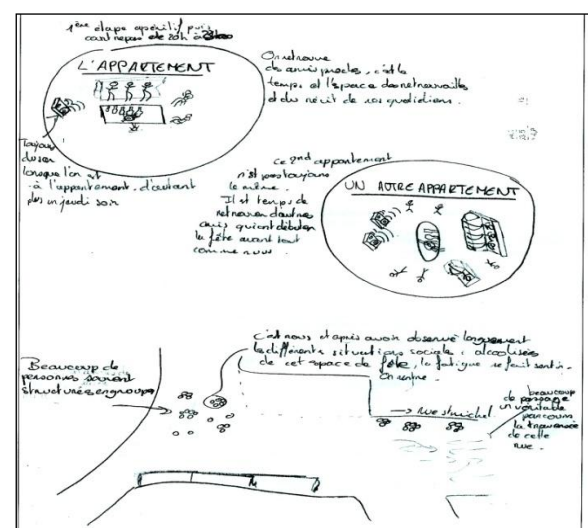 1ère étape apéritif puis
cont repas de 20h à
L'APPARTEMENT
On retrouve
des amis proches, c'est le
temps et l'espace des retrouvailles
et du récit de nos quotidiens.
Toujours
du son
lorsque l'on est
à l'appartement, d'autant
plus un jeudi soir
ce 2nd appartement
n'est pas toujours
le même.
Il est temps de
retrouver d'autres
amis qui ont débuté
la fête avant tout
comme nous.
UN AUTRE APPARTEMENT
C'est nous et après avoir observé longuement
les différentes situations sociales alcoolisées
de cet espace de fête, la fatigue se fait sentir.
On rentre.
Beaucoup de
personnes souvent
structurées en groupe
→ rue st michel
beaucoup
de passage
un véritable
parcours
la traversée
de cette
rue.